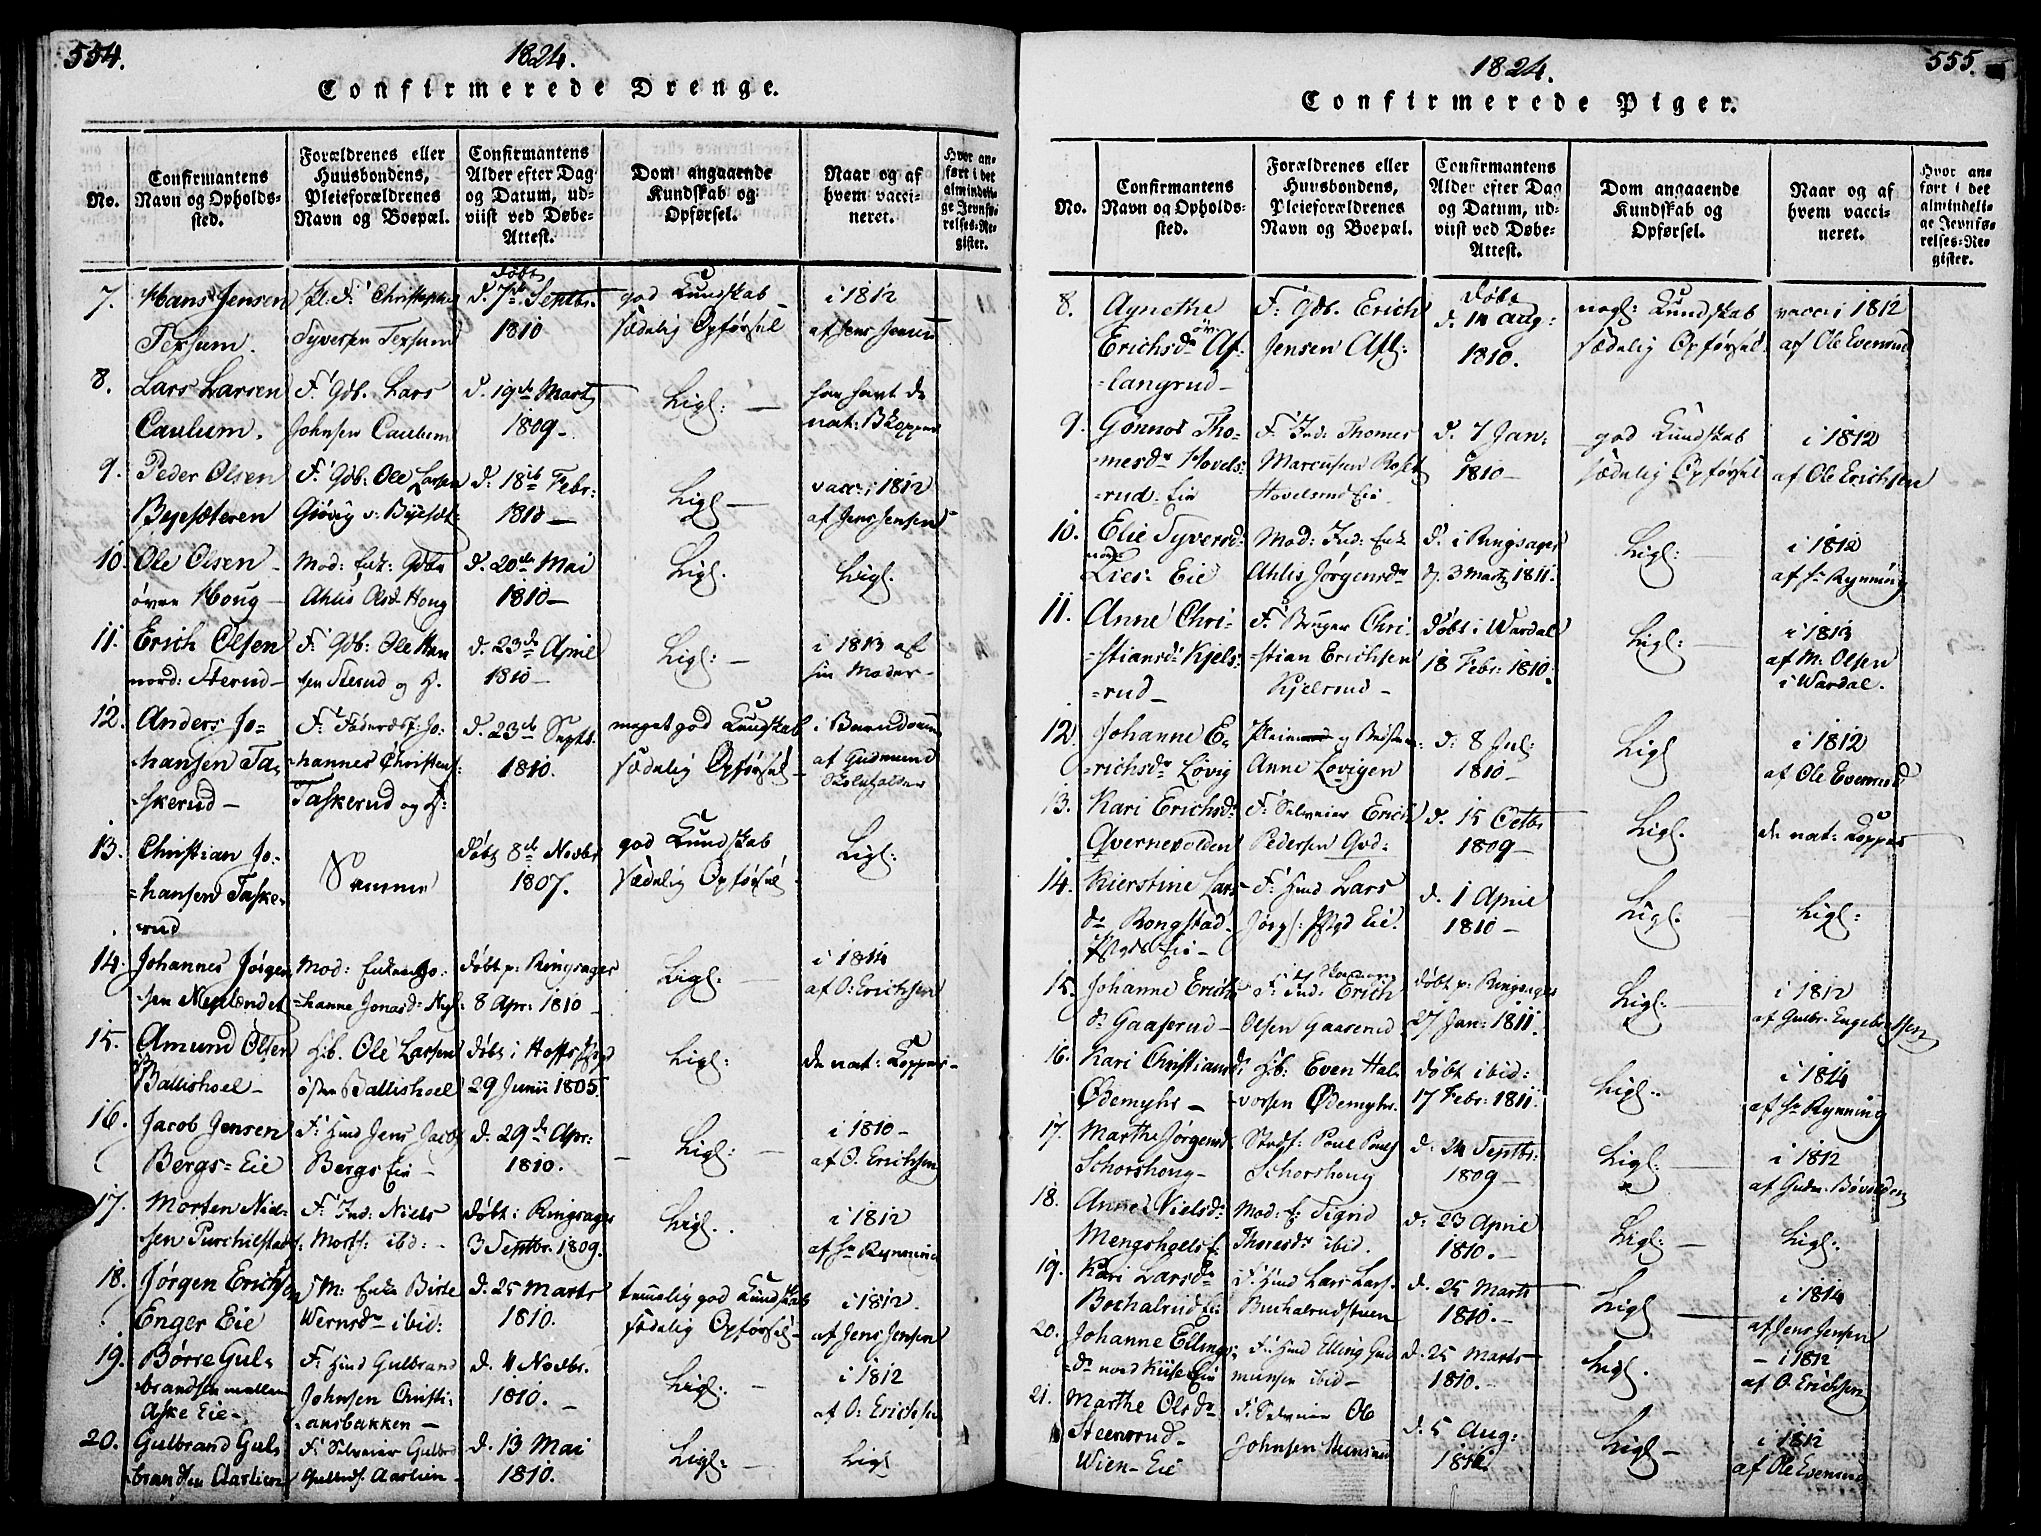 554.
1824.
Confirmerede Drenge.
No.
Confirmantens
Navn og Opholds-
sted.
Forældrenes eller
Huusbondens,
Pleieforældrenes
Navn og Boepæl.
Confirmantens
Alder efter Dag
og Datum, ud-
viist ved Døbe-
Attest.
Dom angaaende
Kundskab og
Opførsel.
Naar og af
hvem vacci-
neret.
Hvor an-
ført i det
almindeli-
ge Jevnfø-
relses-Re-
gister.
7. Hans Jensen
F: Christopher
Døbt
d. 7de Septbr.
1810
god Kundskab
sædelig Opførsel
i 1812
af Jens Jensen
8. Lars Larsen
Caulum.
F. Gdb. Lars
Johnsen Caulum
d. 19de Marts
1809.
Ligl:
har havt de
nat: B Kopper
9. Peder Olsen
F. Gdb: Ole Larsen
d. 18de Febr:
1810
Ligl
vacc: i 1812
af Jens Jensen
10. Ole Olsen
øvre Houg
Mod: Enk: Gdbr
Ahlis Olsd Houg
d. 20de Mai
1810
Ligl.
Ligl.
11. Erich Olsen
nord: Sterud
F. Gdb: Ole Han
sen Sterud og H.
d. 23de April
1810
Ligl:
i 1813 af
sin Moder
12. Anders Jo=
hansen Ta-
skerud
hannes Christens:
Taskerud og H:
d. 23de Septb.
1810.
meget god Kundskab
sædelig Opførsel
i Barndom
af Gudmund
13. Christian Jo=
=hansen Taske-
rud
Samme
døbt 8de Novbr
1807.
god Kundskab
sædelig Opførsel
Ligl:
14. Johannes Jørgen
sen Neplændet
Mod: Enkan Jo-
=hanne Jonasd:
døbt p: Ringsager
8 Apr: 1810
Ligl:
i 1814
af O: Erichsen
15. Amund Olsen
Ballishoel
Hb. Ole Larsen
østre Ballishoel
døbt i Hoffs
29 Junii 1805.
Ligl:
de nat: Kopper
16. Jacob Jensen
Bergs=Eie
F: Hmd Jens Jacobs
Bergs Eie
d. 29de Apr:
1810.
Ligl:
i 1810
af O. Erichsen
17. Morten Niel-
sen Purchilstad
F. Ind: Niels
Morts: ibid:
døbt: Ringsager
3 Septbr. 1809.
Ligl.
i 1812
af Hr Rynning
18. Jørgen Erichsen
Enger Eie
M: Enke Birte
Wernsdr ibid:
d. 25 Marts
1810.
temelig god Kundskab
sædelig Opførsel
i 1812.
af Jens Jensen
19. Børre Gul-
brandsen mellem
Aske Eie
F: Hmd Gulbrand
Johnsen Christi-
ansbakken
d. 11 Novbr.
1810.
Ligl:
i 1812
af O: Erichsen
20. Gulbrand Gul-
brandsen Aarlien
F: Selveier Gulbrd
Gulbds. Aarlien
d. 13 Mai
1810.
Ligl:
Ligl
555.
1824.
Confirmerede Piger.
No.
Confirmantens
Navn og Opholds-
sted.
Forældrenes eller
Huusbondens,
Pleieforældrenes
Navn og Boepæl.
Confirmantens
Alder efter Dag
og Datum, ud-
viist ved Døbe-
Attest.
Dom angaaende
Kundskab og
Opførsel.
Naar og af
hvem vacci-
neret.
Hvor an-
ført i det
almindeli-
ge Jevnfø-
relses-Re-
gister.
8. Agnethe
Erichsdr Af-
=langrud
F: Gdb. Erich
Jensen Afl:
Døbt
d. 14 Aug:
1810.
nogl: Kundskab
sædelig Opførsel
vacc: i 1812
af Ole Evenrud
9. Gonnor Tho-
=mesdr Hovels-
=rud Eie
F. Ind: Thomes
Marcusen
Hovelsrud Eie
d. 7 Jan:
1810
god Kundskab
sædelig Opførsel
i 1812
af Ole Erichsen
10. Elie Syversd:
Lies: Eie
Mod: Ind: Enk
Ahlis Jørgensdr
d. i Ringsager
d. 3 Marts 1811.
Ligl:
i 1812
af Hr Rynning
11. Anne Chri-
=stiansd: Kjels-
=rud
F. Bruger Chri-
stian Erichsen
Kjelsrud
døbt i Wardal
18 Febr: 1810.
Ligl:
i 1813
af M. Olsen
i Wardal.
12. Johanne E-
richsdr Løvig
Anne Løvigen
d: 8 Jul:
1810
Ligl
i 1812
af Ole Evenrud
13. Kari Erichsdr
Qvernevolden
F. Selveier Erich
Pedersen Qvd:
d. 15 Octbr
1809
Ligl.
de nat: Kopper
14. Kierstine Lars
dr Rongstad
F. Hmd Lars
d. 1 April
1810
Ligl.
Ligl:
15. Johanne Erich
dr Gaaserud
F. Ind: Erich
Olsen Gaaserud
døbt p: Ringsager
27 Jan: 1811.
Ligl:
i 1812
af Gulbr. Engebretsen
16. Kari Christiansd:
Ødemyhr
Hb: Even Hal-
vorsen Ødemyhr.
døbt ibid:
17 Febr: 1811.
Ligl:
i 1814
af Hr Rynning
17. Marthe Jørgensd
Schorshoug
Stedf: Poul Pouls
Schorshoug
d. 24 Septbr:
1809
Ligl:
i 1812
18. Anne Nielsdr
Mod: Sigrid
Thoresdr ibid.
d: 23 April
1810.
Ligl:
Ligl:
19. Kari Larsdr
F. Hmd Lars Lars.
d. 25 Marts
1810.
Ligl
i 1814
af Jens Jensen
20. Johanne Ellings-
dr nord Kiise Eie
F: Hmd Elling Gud
munsen ibid
d. 25 Marts
1810.
Ligl.
i 1812
af O. Erichsen
21. Marthe Olsdr
Steensrud
Wien-Eie
F. Selveier Ole
Johnsen
d. 5 Aug:
1810
Ligl
i 1812
af Ole Evenrud